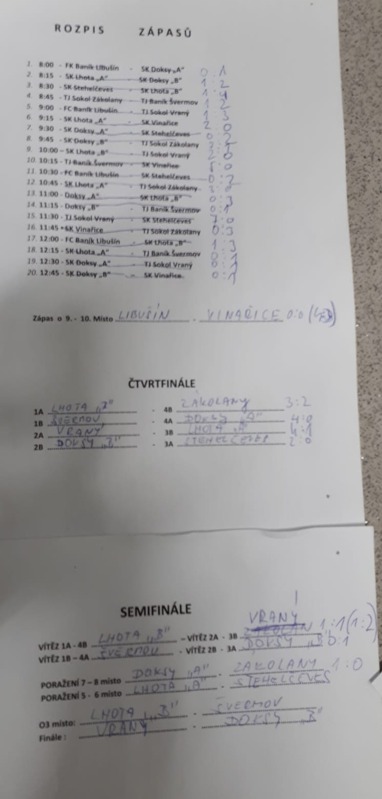 ROZPIS ZÁPASŮ
1. 8:00 - FK Baník Libušín - SK Doksy „A" 0:1
2. 8:15 - SK Lhota „A" - SK Doksy „B" 1:2
3. 8:30 - SK Stehelčeves - SK Lhota „B"
4. 8:45 - TJ Sokol Zákolany - TJ Baník Švermov 1:2
5. 9:00 - FC Baník Libušín - TJ Sokol Vraný 1:3
6. 9:15 - SK Lhota „A" - SK Vinařice 2:0
7. 9:30 - SK Doksy „A" - SK Stehelčeves
8. 9:45 - SK Doksy „B" - TJ Sokol Zákolany
9. 10:00 - SK Lhota „B" - TJ Sokol Vraný 2:0
10. 10:15 - TJ Baník Švermov - SK Vinařice
11. 10:30 - FC Baník Libušín - SK Stehelčeves
12. 10:45 - SK Lhota „A" - TJ Sokol Zákolany
13. 11:00 Doksy „A" - SK Lhota „B"
14. 11:15 - Doksy „B" - TJ Baník Švermov
15. 11:30 - TJ Sokol Vraný - SK Stehelčeves
16. 11:45 - SK Vinařice - TJ Sokol Zákolany 0:3
17. 12:00 - FC Baník Libušín - SK Lhota „B" 1:3
18. 12:15 - SK Lhota „A" - TJ Baník Švermov 0:1
19. 12:30 - SK Doksy „A" - TJ Sokol Vraný 0:1
20. 12:45 - SK Doksy „B" - SK Vinařice 0:1
Zápas o 9. - 10. Místo LIBUŠÍN - VINAŘICE 0:0
ČTVRTFINÁLE
1A LHOTA „B" - 4B ZÁKOLANY 3:2
1B ŠVERMOV - 4A DOKSY „A" 4:0
2A VRANÝ - 3B LHOTA „A" 4:1
2B DOKSY „B" - 3A STEHELČEVES 2:0
SEMIFINÁLE
VRANÝ
VÍTĚZ 1A - 4B LHOTA „B" – VÍTĚZ 2A - 3B 1:1 (1:2)
VÍTĚZ 1B – 4A ŠVERMOV - VÍTĚZ 2B - 3A DOKSY „B" 0:1
PORAŽENÍ 7 – 8 místo DOKSY „A" - ZÁKOLANY 1:0
PORAŽENÍ 5 - 6 místo LHOTA „A" - STEHELČEVES
O3 místo: LHOTA „B" - ŠVERMOV
Finále : VRANÝ - DOKSY „B"